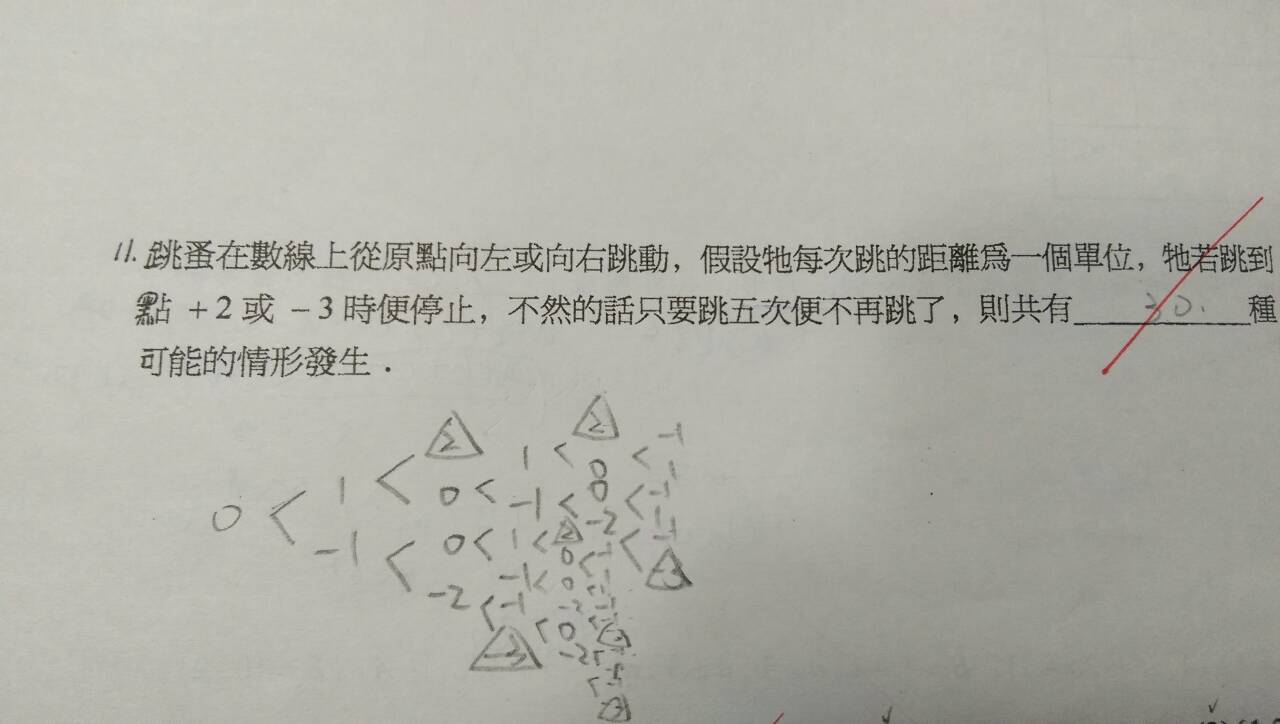 11. 跳蚤在數線上從原點向左或向右跳動，假設牠每次跳的距離爲一個單位，牠若跳到
點 +2 或 −3 時便停止，不然的話只要跳五次便不再跳了，則共有 30. 種
可能的情形發生．
2 2 -1
1 < 1 < 0 < 1
0 < 0 < -1 < 0 < -1
-1 < 0 < 1 < 2 -2 < 1
-1
-2 < -1 < 0 -3
-3 < 0
-2